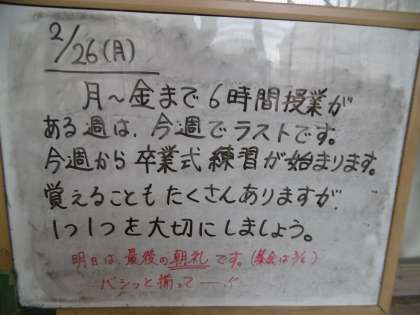 2/26(月)
月～金まで6時間授業が
ある週は、今週でラストです。
今週から卒業式練習が始まります。
覚えることもたくさんありますが、
1つ1つを大切にしましょう。
明日は最後の朝礼です。(集会は3/6)
バシッと揃ってー!!